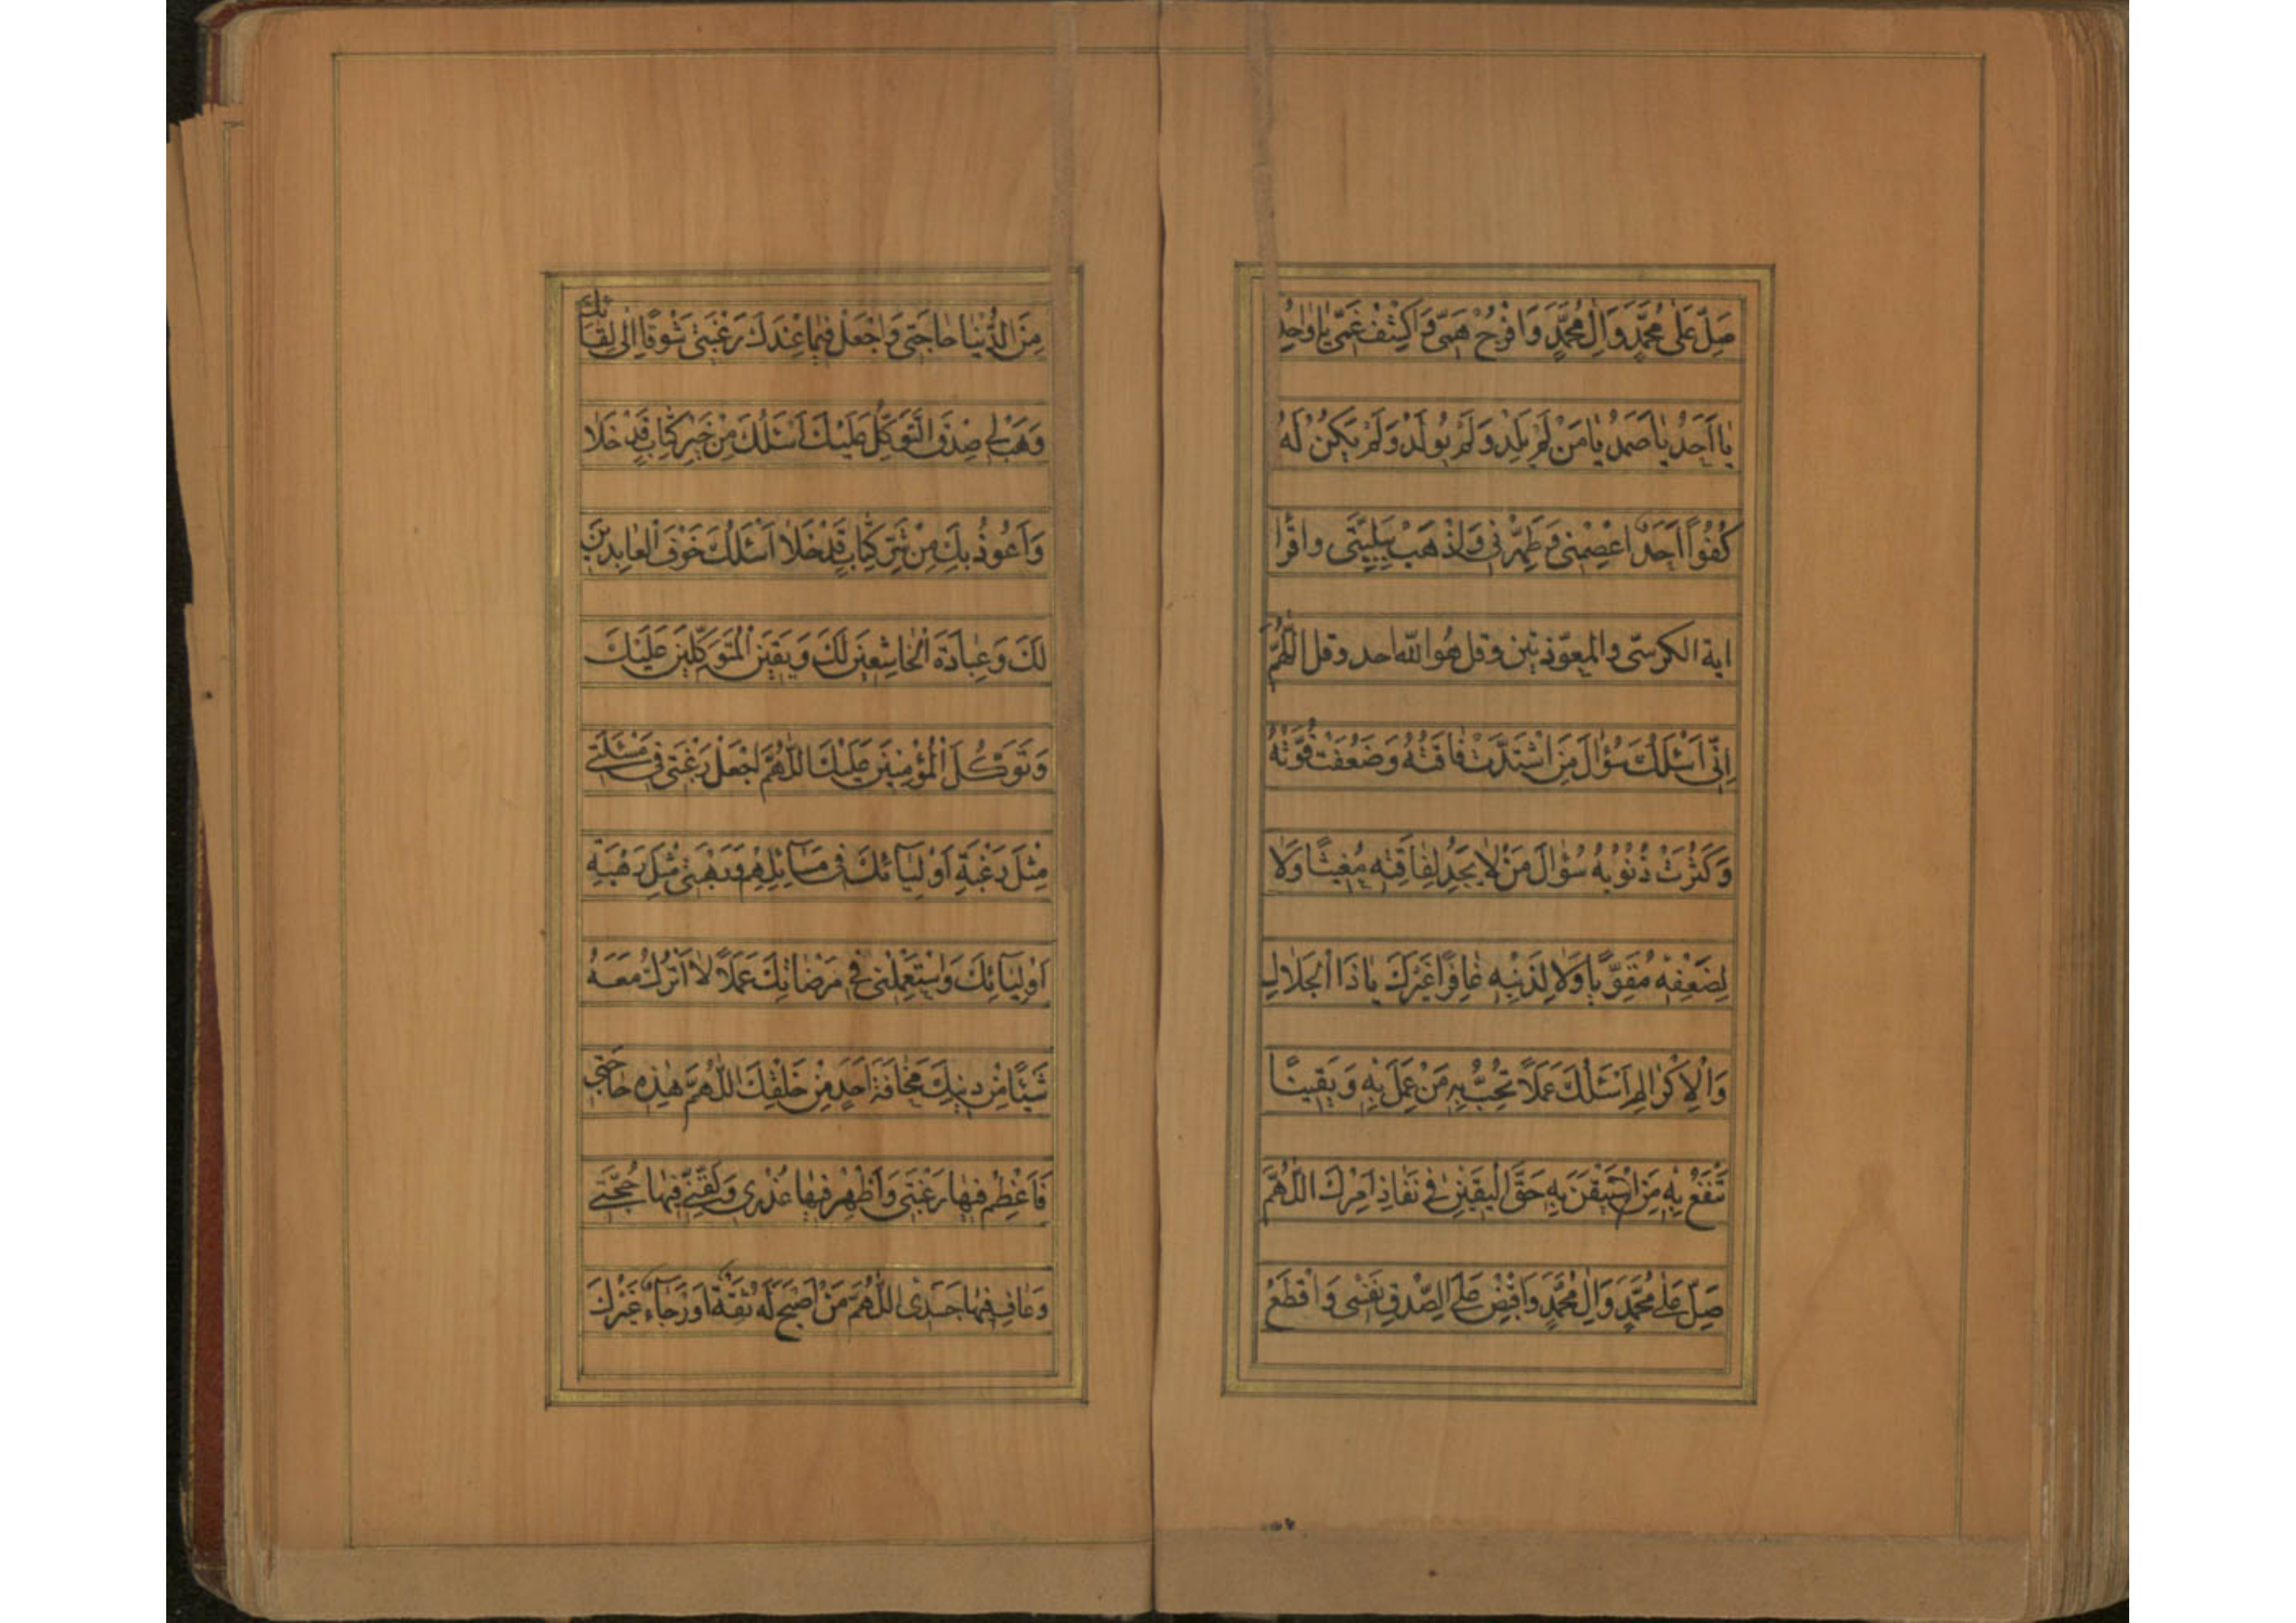 صَلِّ عَلٰى مُحَمَّدٍ وَاٰلِ مُحَمَّدٍ وَافْرُجْ هَمّى وَاكْشِفْ غَمّى يٰا وٰاحِدُ
يٰا اَحَدُ يٰا صَمَدُ يٰا مَنْ لَمْ يَلِدْ وَلَمْ يُولَدْ وَلَمْ يَكُنْ لَهُ
كُفُواً اَحَدٌ اعْصِمْنى وَطَهِّرْنى وَاذْهَبْ بِبَلِيَّتى واقرأ
اية الكرسّى والمعوّذتين وقل هُوَ اللّه احد وقل اللّٰهُمَّ
اِنّى اَسْئَلُكَ سُؤٰالَ مَنِ اشْتَدَّتْ فٰاقَتُهُ وَضَعُفَتْ قُوَّتُهُ
وَكَثُرَتْ ذُنُوبُهُ سُؤٰالَ مَنْ لٰا يَجِدُ لِفٰاقَتِهِ مُغيثًا وَلٰا
لِضَعْفِهِ مُقَوِّيًا وَلٰا لِذَنْبِهِ غٰافِرًا غَيْرَكَ يٰا ذَا الْجَلٰالِ
وَالْاِكْرٰامِ اَسْئَلُكَ عَمَلًا تُحِبُّ بِهِ مَنْ عَمِلَ بِهِ وَيَقينًا
تَنْفَعُ بِهِ مَنِ اسْتَيْقَنَ بِهِ حَقَّ الْيَقينِ فى نَفٰاذِ اَمْرِكَ اللّٰهُمَّ
صَلِّ عَلٰى مُحَمَّدٍ وَاٰلِ مُحَمَّدٍ وَاقْبِضْ عَلَى الصِّدْقِ نَفْسى وَاقْطَعْ
مِنَ الدُّنْيٰا حٰاجَتى وَاجْعَلْ فيمٰا عِنْدَكَ رَغْبَتى شَوْقًا اِلٰى لِقٰائِكَ
وَهَبْ لى صِدْقَ التَّوَكُّلِ عَلَيْكَ اَسْئَلُكَ مِنْ خَيْرِ كِتٰابٍ قَدْ خَلٰا
وَاَعُوذُ بِكَ مِنْ شَرِّ كِتٰابٍ قَدْ خَلٰا اَسْئَلُكَ خَوْفَ الْعٰابِدينَ
لَكَ وَعِبٰادَةَ الْخٰاشِعينَ لَكَ وَيَقينَ الْمُتَوَكِّلينَ عَلَيْكَ
وَتَوَكُّلَ الْمُؤْمِنينَ عَلَيْكَ اللّٰهُمَّ اجْعَلْ رَغْبَتى فى مَسْئَلَتى
مِثْلَ رَغْبَةِ اَوْلِيٰآئِكَ فى مَسٰآئِلِهِمْ وَرَهْبَتى مِثْلَ رَهْبَةِ
اَوْلِيٰآئِكَ وَاسْتَعْمِلْنى فى مَرْضٰاتِكَ عَمَلًا لٰا اَتْرُكُ مَعَهُ
شَيْئًا مِنْ دينِكَ مَخٰافَةَ اَحَدٍ مِنْ خَلْقِكَ اللّٰهُمَّ هٰذِهِ حٰاجَتى
فَاَعْظِمْ فيهٰا رَغْبَتى وَاَظْهِرْ فيهٰا عُذْرى وَلَقِّنّى فيهٰا حُجَّتى
وَعٰافِ فيهٰا جَسَدى اللّٰهُمَّ مَنْ اَصْبَحَ لَهُ ثِقَةٌ اَوْ رَجٰآءٌ غَيْرُكَ